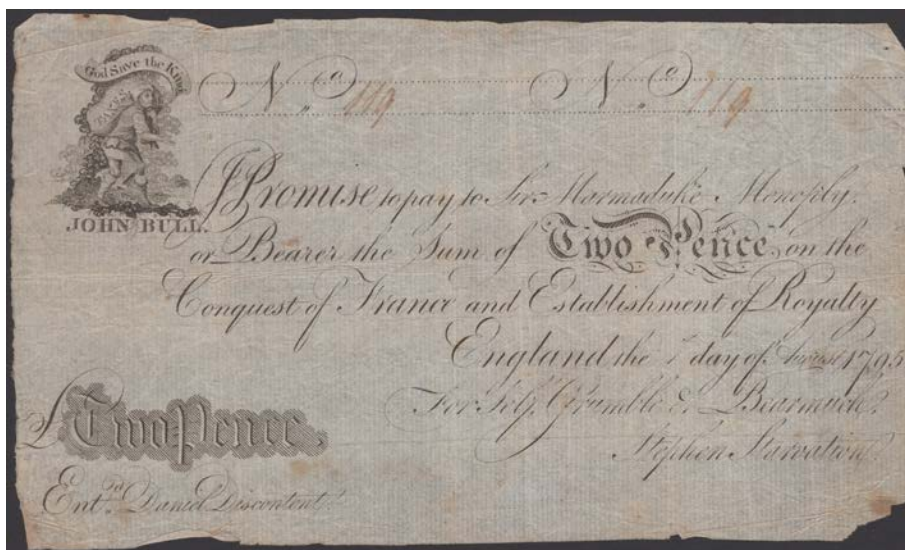 God Save the King
TAXES
JOHN BULL.
No. 119 No. 119
I Promise to pay to Sir Marmaduke Monopoly.
or Bearer the Sum of Two Pence on the
Conquest of France and Establishment of Royalty
England the 1 day of August 1795
For Self, Grumble & Bearmuch.
£ Two Pence.
Stephen Starvation
Entd. Daniel Discontent